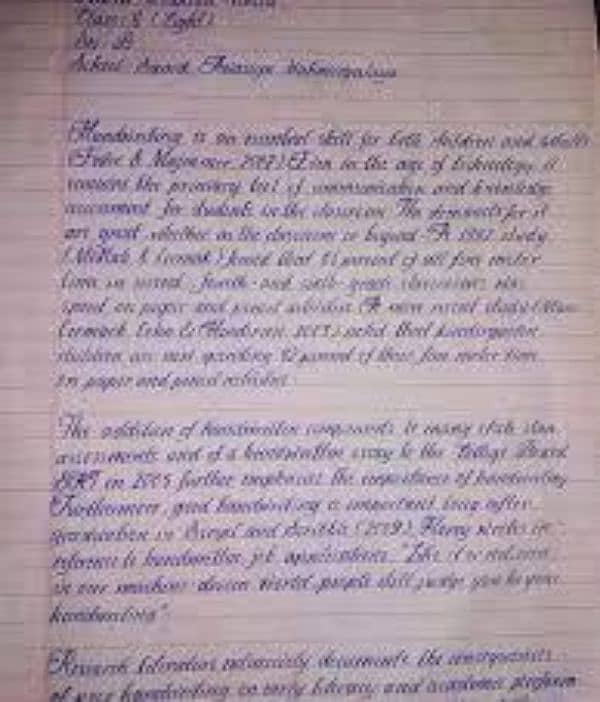 Class 8 (Eight)
Handwriting is an essential skill for both children and adults
(Feder & Majnemer, 2007). Even in the age of technology, it
remains the primary tool of communication and knowledge
assessment for students in the classroom. The demands for it
are great, whether in the classroom or beyond. A 1992 study
(McHale & Cermak) found that 85 percent of all fine motor
time in second-, fourth- and sixth-grade classrooms was
spent on paper and pencil activities. A more recent study (Marr,
Cermack, Cohn & Henderson, 2003) noted that kindergarten
children are now spending 42 percent of their fine motor time
on paper and pencil activities.
The addition of handwritten components to many state
assessments and of a handwritten essay to the College Board
SAT in 2005 further emphasize the importance of handwriting.
Furthermore, good handwriting is important long after
graduation. in Script and Scribble (2009), Florey writes in
reference to handwritten job applications, "Like it or not, even
in our machine-driven world, people still judge you by your
handwriting".
Research literature extensively documents the consequences
of poor handwriting on early literacy and academic